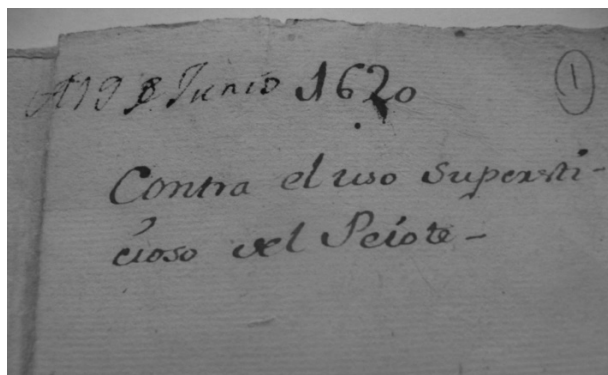 A 19 D Junio 1620
1
Contra el uso Supersti-
cioso del Peiote-